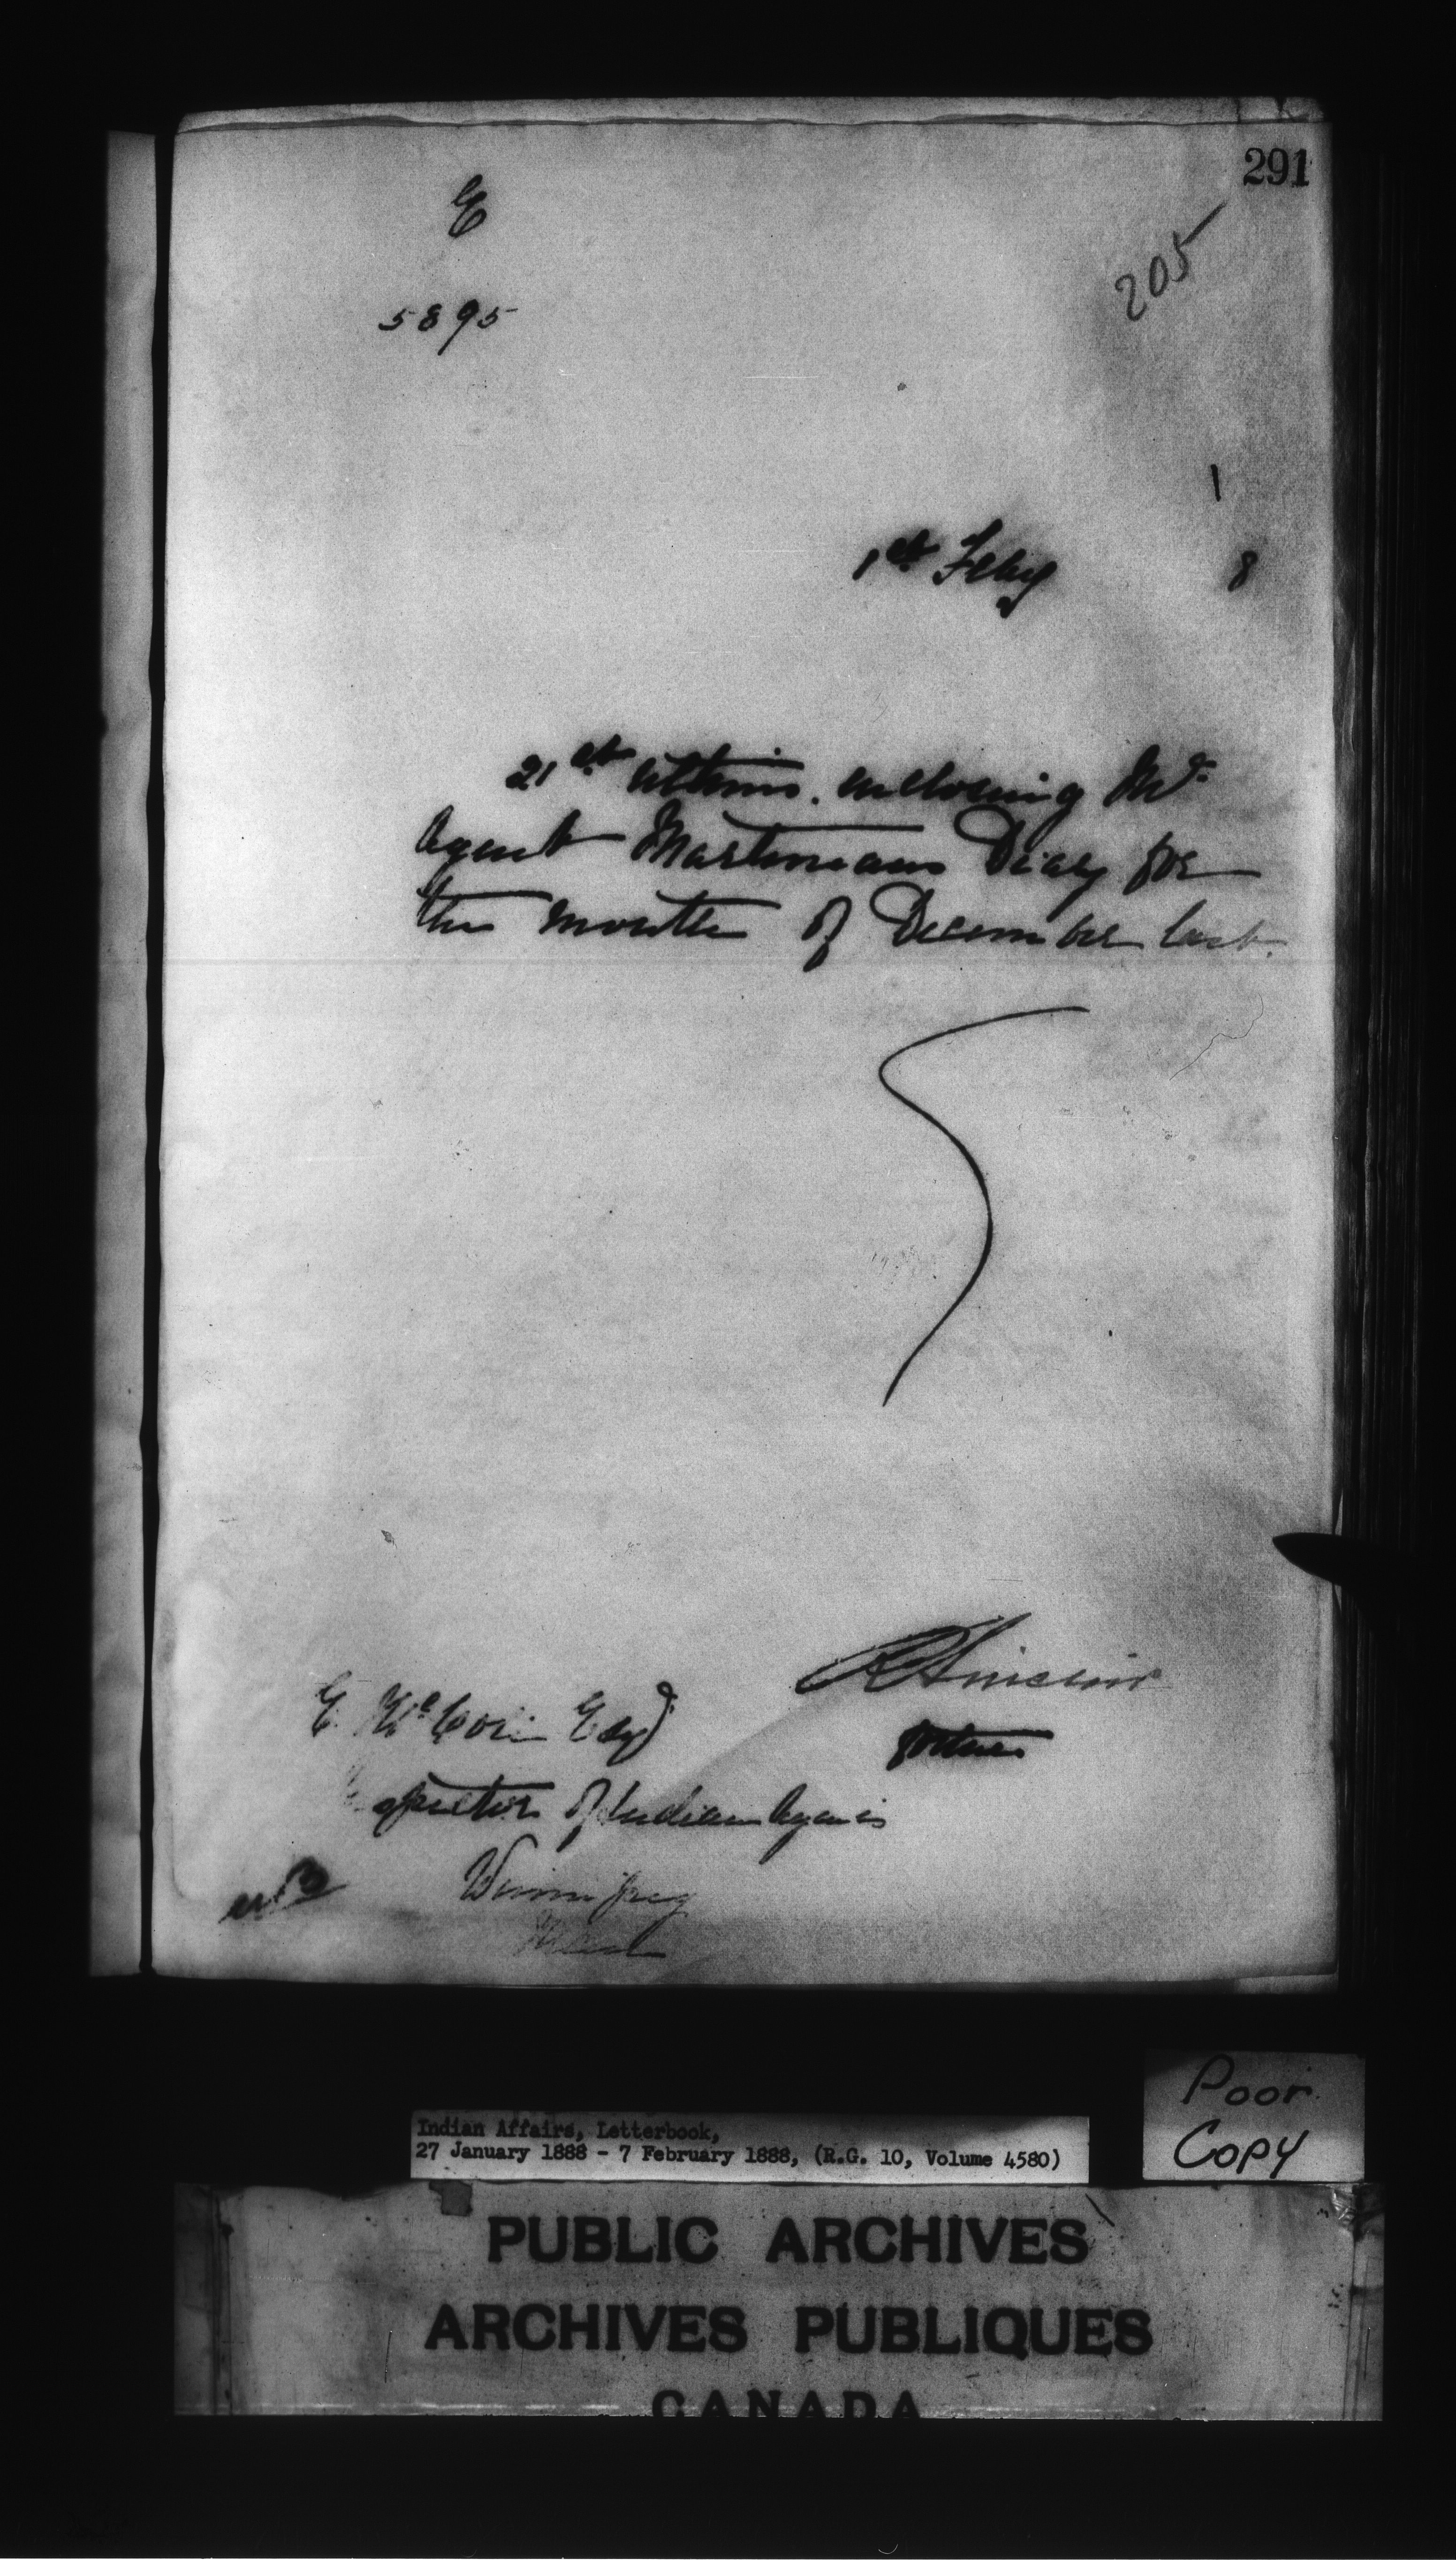 291
E
205
5895
1
1st Feby 8
21st ultimo. enclosing Mr
Agent Martineaus Diary for
the month of December last.
R Sinclair
E. McColl Esqr
spector of Indian Agencies
Winnipeg
Man
Poor
Copy
Indian Affairs, Letterbook,
27 January 1888 - 7 February 1888, (R.G. 10, Volume 4580)
PUBLIC ARCHIVES
ARCHIVES PUBLIQUES
CANADA